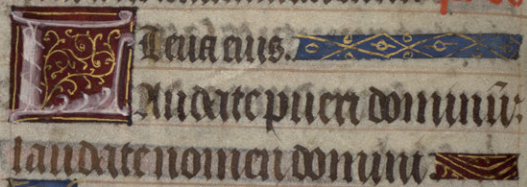 Leua eius.
LAudate pueri dominū:
laudate nomen domini